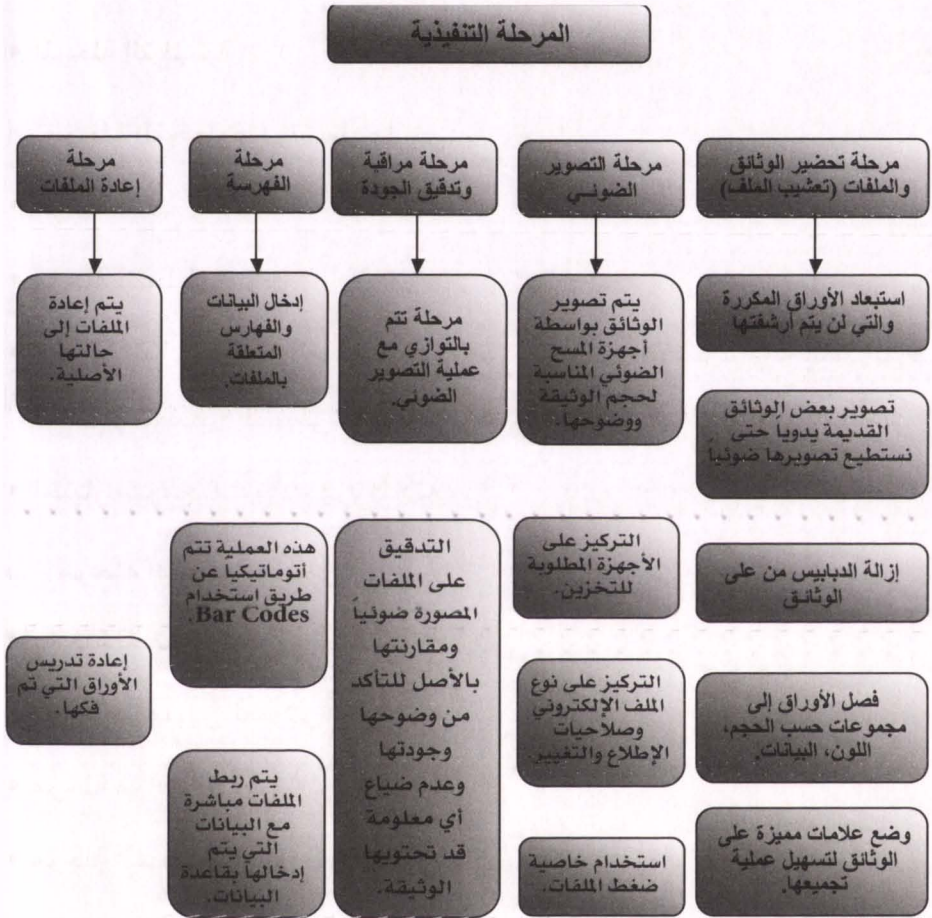 المرحلة التنفيذية
مرحلة تحضير الوثائق
والملفات (تعشيب الملف)
استبعاد الأوراق المكررة
والتي لن يتم أرشفتها
تصوير بعض الوثائق
القديمة يدويا حتى
نستطيع تصويرها ضوئياً
إزالة الدبابيس من على
الوثائق
فصل الأوراق إلى
مجموعات حسب الحجم،
اللون، البيانات.
وضع علامات مميزة على
الوثائق لتسهيل عملية
تجميعها.
مرحلة التصوير
الضوئي
يتم تصوير
الوثائق بواسطة
أجهزة المسح
الضوئي المناسبة
لحجم الوثيقة
ووضوحها.
التركيز على
الأجهزة المطلوبة
للتخزين.
التركيز على نوع
الملف الإلكتروني
وصلاحيات
الإطلاع والتغيير.
استخدام خاصية
ضغط الملفات.
مرحلة مراقبة
وتدقيق الجودة
مرحلة تتم
بالتوازي مع
عملية التصوير
الضوئي.
التدقيق
على الملفات
المصورة ضوئياً
ومقارنتها
بالأصل للتأكد
من وضوحها
وجودتها
وعدم ضياع
أي معلومة
قد تحتويها
الوثيقة.
مرحلة
الفهرسة
إدخال البيانات
والفهارس
المتعلقة
بالملفات.
هذه العملية تتم
أتوماتيكيا عن
طريق استخدام
Bar Codes.
يتم ربط
الملفات مباشرة
مع البيانات
التي يتم
إدخالها بقاعدة
البيانات.
مرحلة
إعادة الملفات
يتم إعادة
الملفات إلى
حالتها
الأصلية.
إعادة تدريس
الأوراق التي تم
فكها.